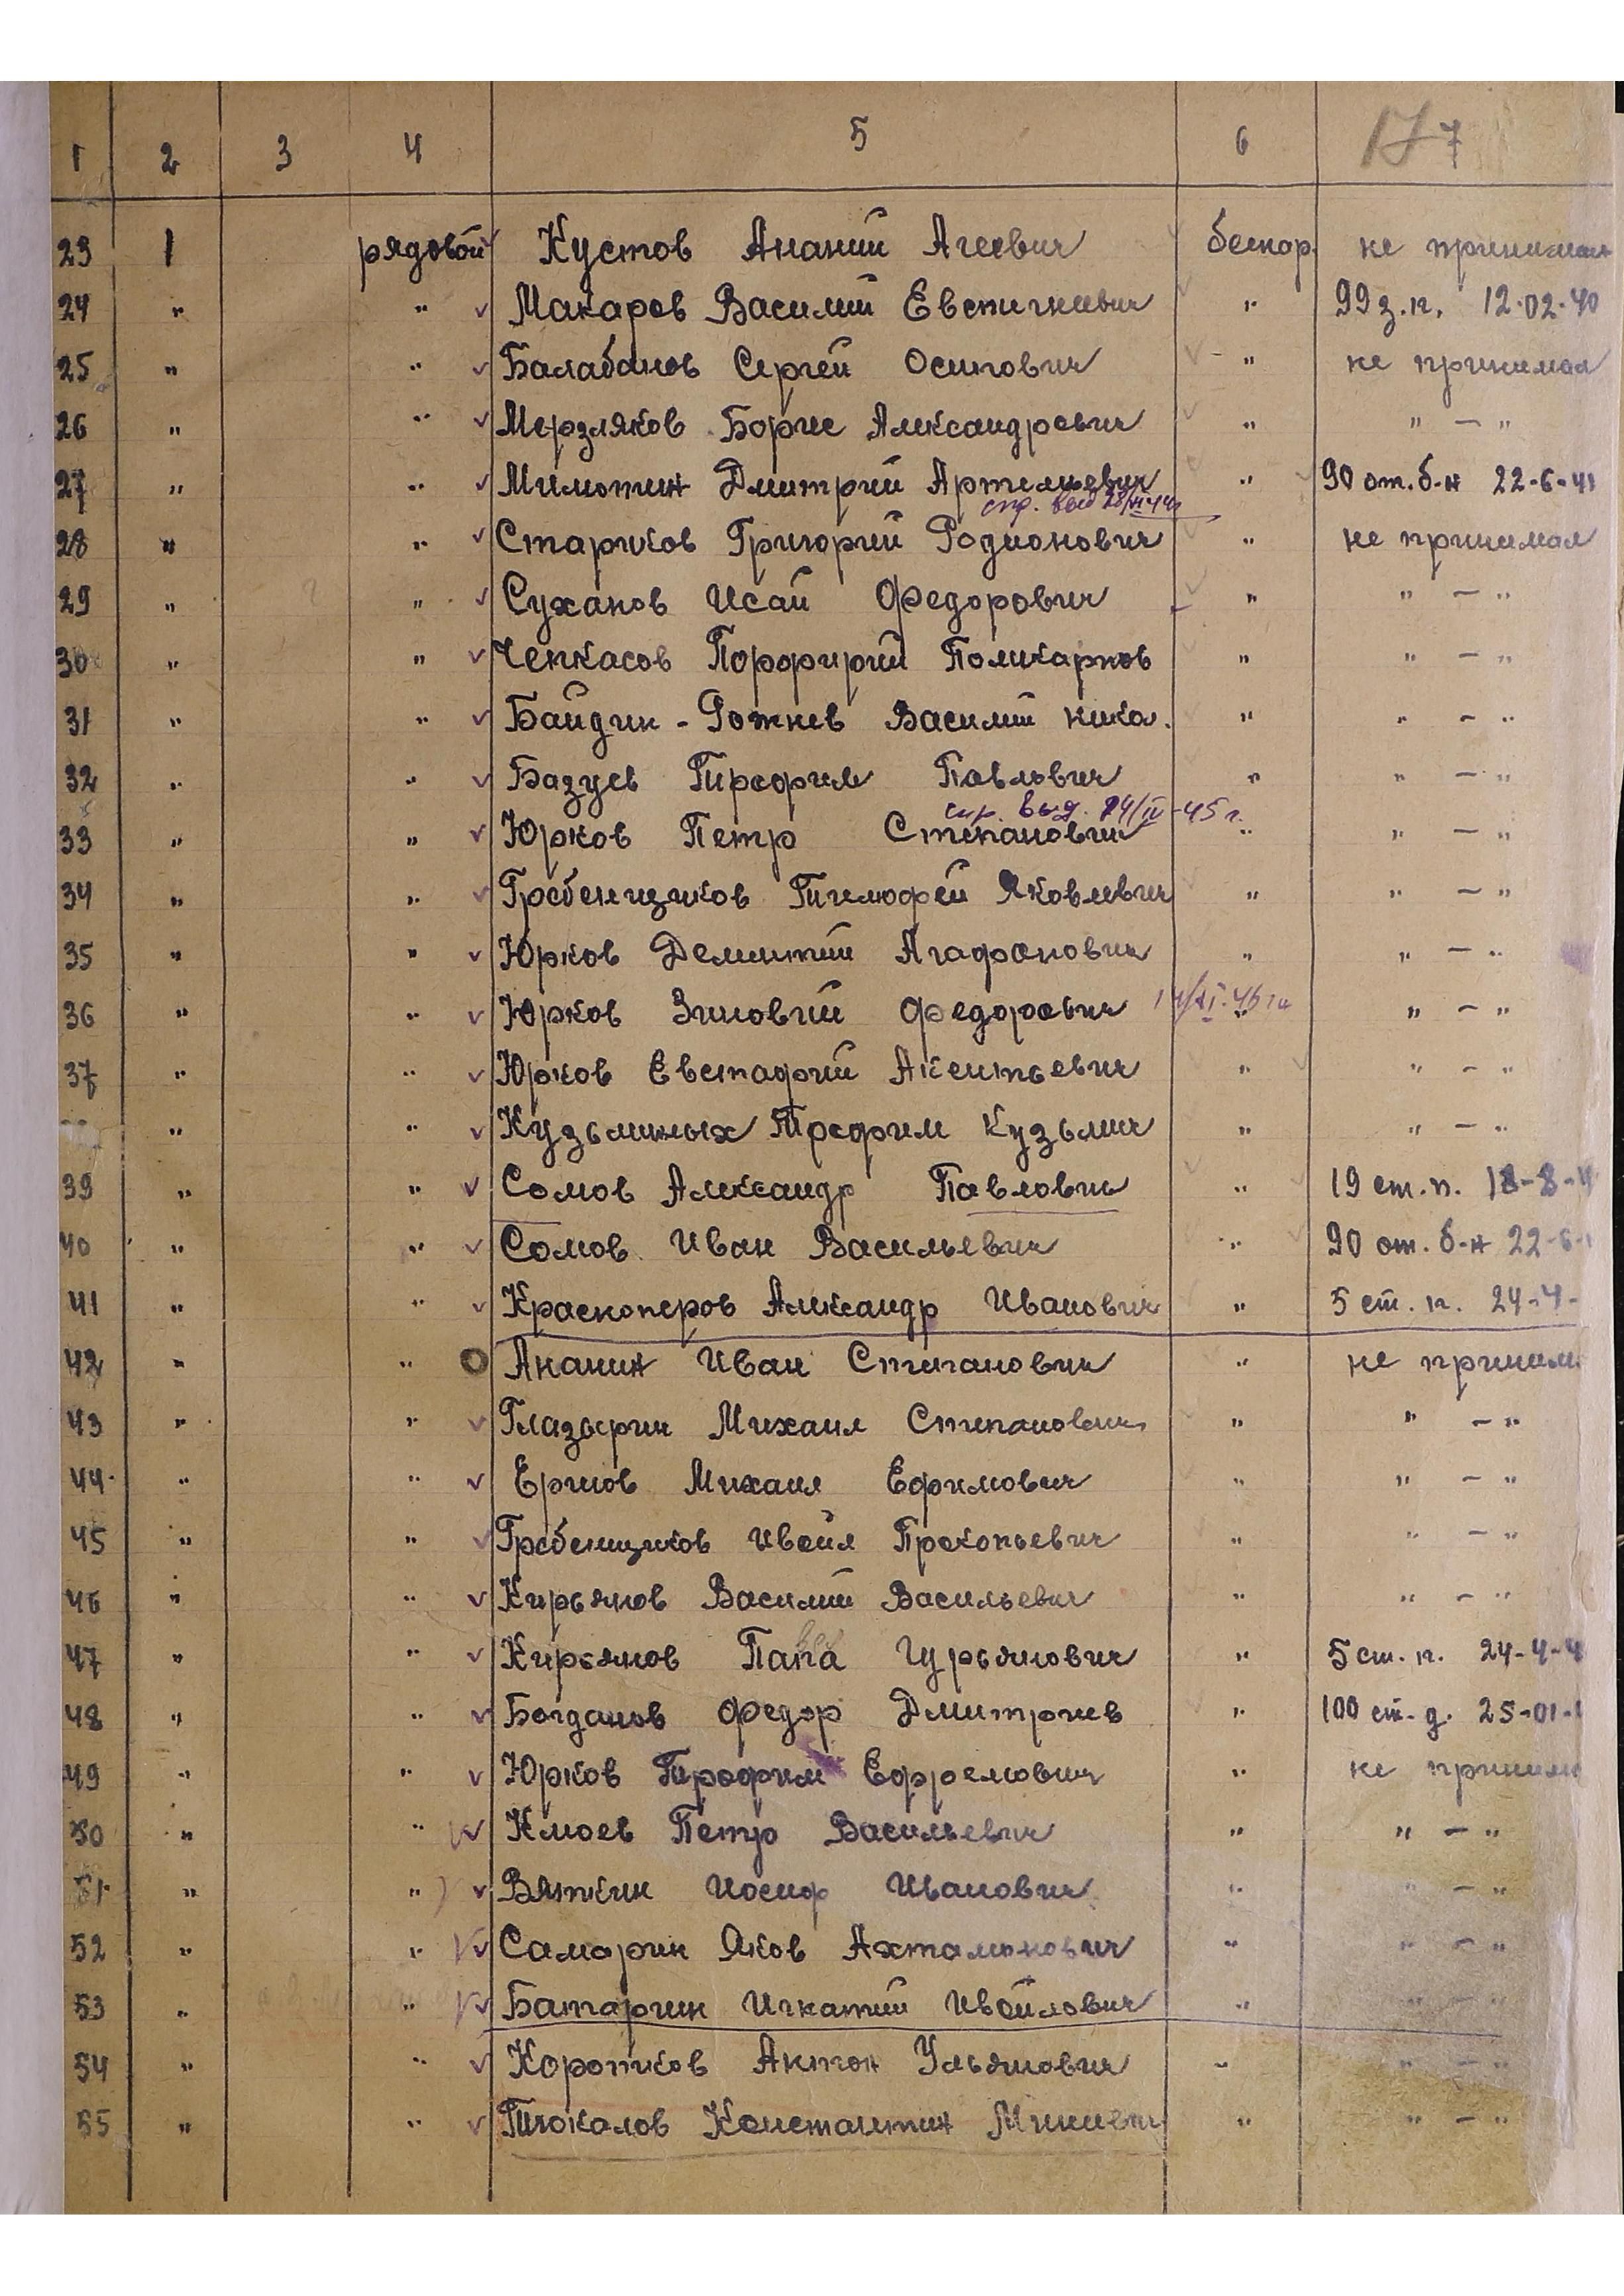 1 2 3 4 5 6 7
23 1 рядовой Кустов Ананий Агеевич беспар. не принимал
24 " " Макаров Василий Евстигнеевич " 99 з.п. 12.02.40
25 " " Балабанов Сергей Осипович " не принимал
26 " " Мерзляков Борис Александрович " " — "
27 " " Милютин Дмитрий Артемьевич " 90 от. б-н 22-6-41
спр. выд
28 " " Стариков Григорий Родионович " не принимал
29 " " Суханов Исай Федорович " " — "
30 " " Ченкасов Порфирий Поликарпов " " — "
31 " " Байдин - Рожнев Василий Никол. " " — "
32 " " Базуев Трофим Павлович " " — "
спр. выд. 24/IV-45 г.
33 " " Юрков Петр Степанович " " — "
34 " " Гребенщиков Тимофей Яковлевич " " — "
35 " " Юрков Дементий Агафонович " " — "
36 " " Юрков Зиновий Федорович " " — "
37 " " Юрков Евстафий Аксентьевич " " — "
" " Кузьминых Трофим Кузьмич " " — "
39 " " Сомов Александр Павлович " 19 ст.п. 18-8-4
40 " " Сомов Иван Васильевич " 90 от. б-н 22-6-
41 " " Красноперов Александр Иванович " 5 ст. п. 24-4-
42 " " Ананин Иван Степанович " не приним
43 " " Глазырин Михаил Степанович " " — "
44 " " Ершов Михаил Ефимович " " — "
45 " " Гребенщиков Ивойл Прокопьевич " " — "
46 " " Кирьянов Василий Васильевич " " — "
47 " " Кирьянов Папа Гурьянович " 5 ст. п. 24-4-4
48 " " Богданов Федор Дмитриев " 100 ст. д. 25-01-
49 " " Юрков Трофим Ефремович " не принима
50 " " Клюев Петр Васильевич " " — "
51 " " Вяткин Иосиф Иванович " " — "
52 " " Самарин Яков Ахтамонович " " — "
53 " " Батарин Игнатий Ивойлович " " — "
54 " " Коротков Антон Ульянович " " — "
55 " " Тюкалов Константин " " — "